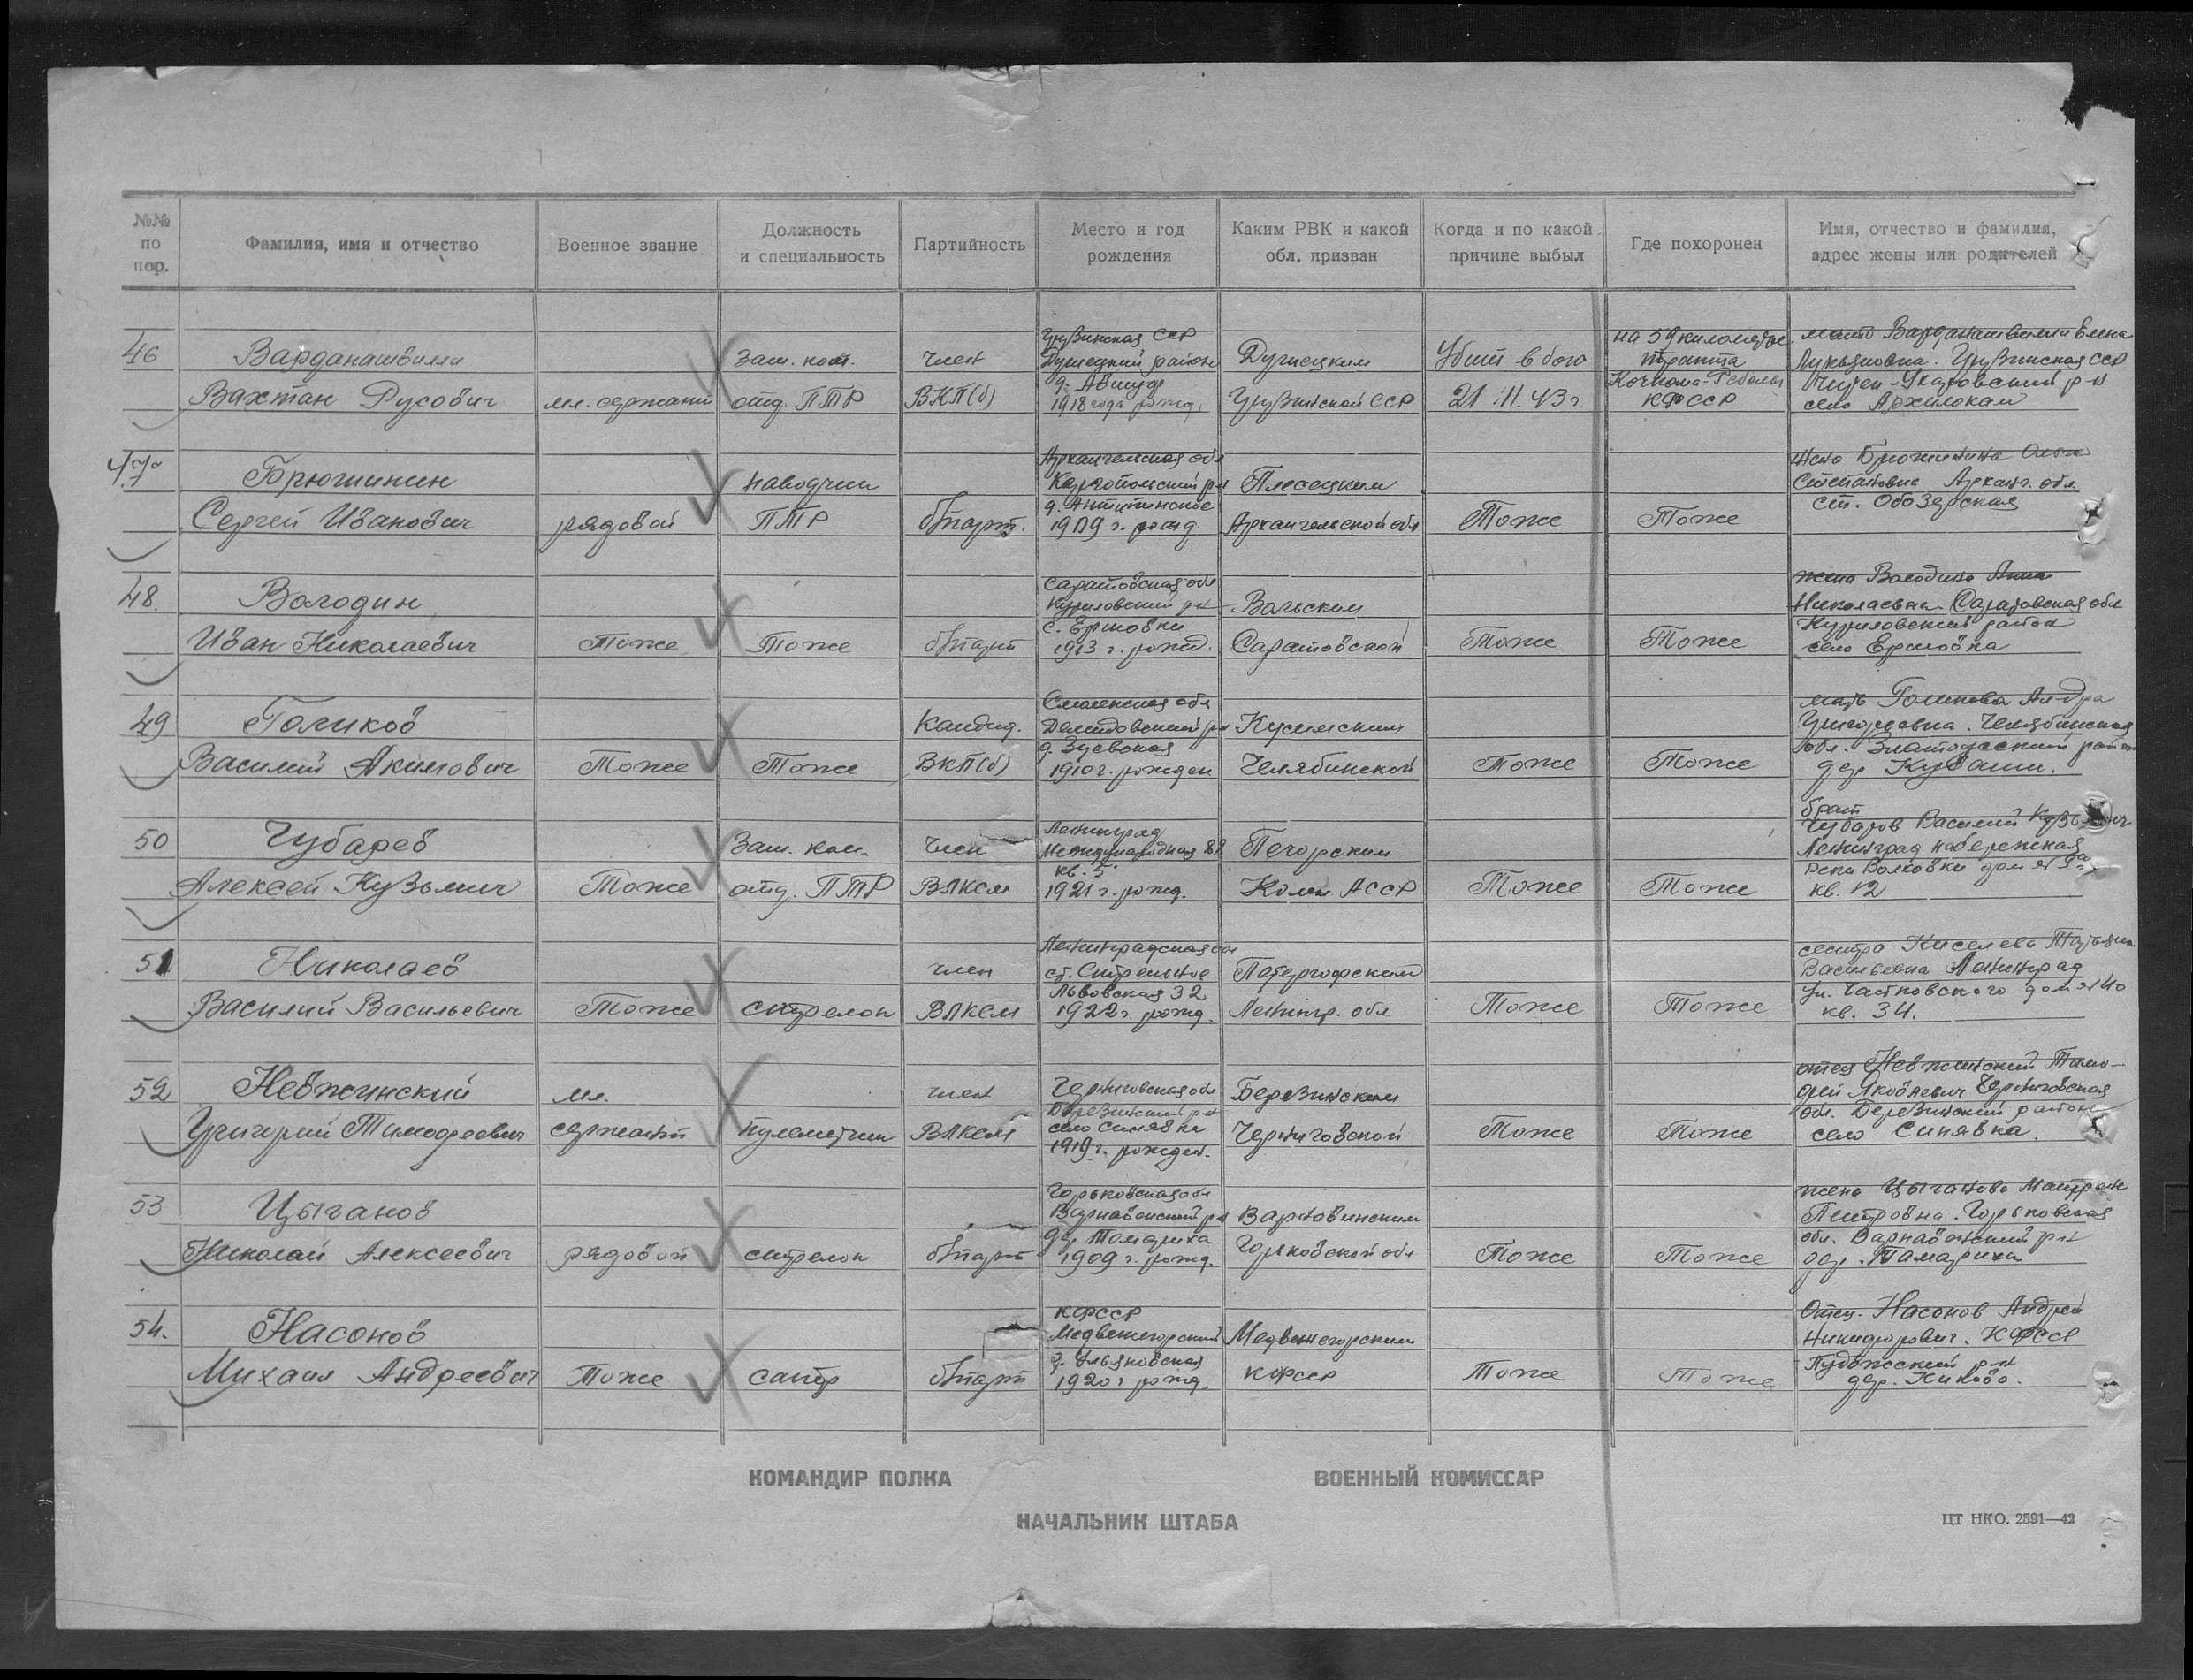 №№ по пор.
Фамилия, имя и отчество
Военное звание
Должность и специальность
Партийность
Место и год рождения
Каким РВК и какой обл. призван
Когда и по какой причине выбыл
Где похоронен
Имя, отчество и фамилия, адрес жены или родителей
46
Варданашвили
Вахтан Дусович
мл. сержант
Зам. ком.
отд. ПТР
член
ВКП(б)
Грузинская ССР
Душецкий район
1918 года рожд.
Душецким
Грузинской ССР
Убит в бою
21.11.43 г.
на 59 километре
тракта
Кочкома-Реболы
КФССР
мать Варданашвили Елена
Лукьяновна. Грузинская ССР
село Архилокам
47
Брюшинин
Сергей Иванович
рядовой
наводчик
ПТР
б/парт.
Архангельская обл
Каргопольский р-н
1909 г. рожд.
Плесецким
Архангельской обл
Тоже
Тоже
жена Брюшинина
Степановна Арханг. обл.
ст. Обозерская
48.
Володин
Иван Николаевич
Тоже
Тоже
б/парт
Саратовская обл
Куриловский р-н
с. Ершовки
1913 г. рожд.
Вольским
Саратовской
Тоже
Тоже
жена Володина Анна
Николаевна Саратовская обл
Куриловский район
село Ершовка
49
Голиков
Василий Акимович
Тоже
Тоже
Кандид.
ВКП(б)
Смоленская обл
Демидовский р-н
д. Зуевская
1910 г. рожден
Кусинским
Челябинской
Тоже
Тоже
мать Голикова
Григорьевна. Челябинская
обл. Златоустский район
дер Куваши.
50
Чубарев
Алексей Кузьмич
Тоже
Зам. ком.
отд. ПТР
член
ВЛКСМ
Ленинград
Международная 88
кв. 5
1921 г. рожд.
Печорским
Коми АССР
Тоже
Тоже
брат
Чубаров Василий Кузьмич
Ленинград набережная
реки Волковки дом
кв. 12
51
Николаев
Василий Васильевич
Тоже
стрелок
член
ВЛКСМ
Ленинградская обл
ст. Стрельное
Львовская 32
1922 г. рожд.
Петергофским
Ленингр. обл
Тоже
Тоже
сестра Киселева Татьяна
Васильевна Ленинград
ул. Чайковского дом
кв. 34.
52
Невжинский
Григорий Тимофеевич
мл.
сержант
пулеметчик
член
ВЛКСМ
Черниговская обл
Березинский р-н
село Синявка
1919 г. рожден.
Березинским
Черниговской
Тоже
Тоже
отец Невжинский Тимо-
фей Яковлевич Черниговская
обл. Березинский район
село Синявка.
53
Цыганов
Николай Алексеевич
рядовой
стрелок
б/парт
Горьковская обл
Варнавинский р-н
1909 г. рожд.
Варнавинским
Горьковской обл
Тоже
Тоже
жена Цыганова
Петровна. Горьковская
обл. Варнавинский р-н
54.
Насонов
Михаил Андреевич
Тоже
сапер
б/парт
КФССР
Медвежегорский
д. Ульяновская
1920 г рожд.
Медвежегорским
КФССР
Тоже
Тоже
Отец. Насонов Андрей
Никифорович. КФССР
Пудожский р-н
КОМАНДИР ПОЛКА
ВОЕННЫЙ КОМИССАР
НАЧАЛЬНИК ШТАБА
ЦТ НКО. 2591—42